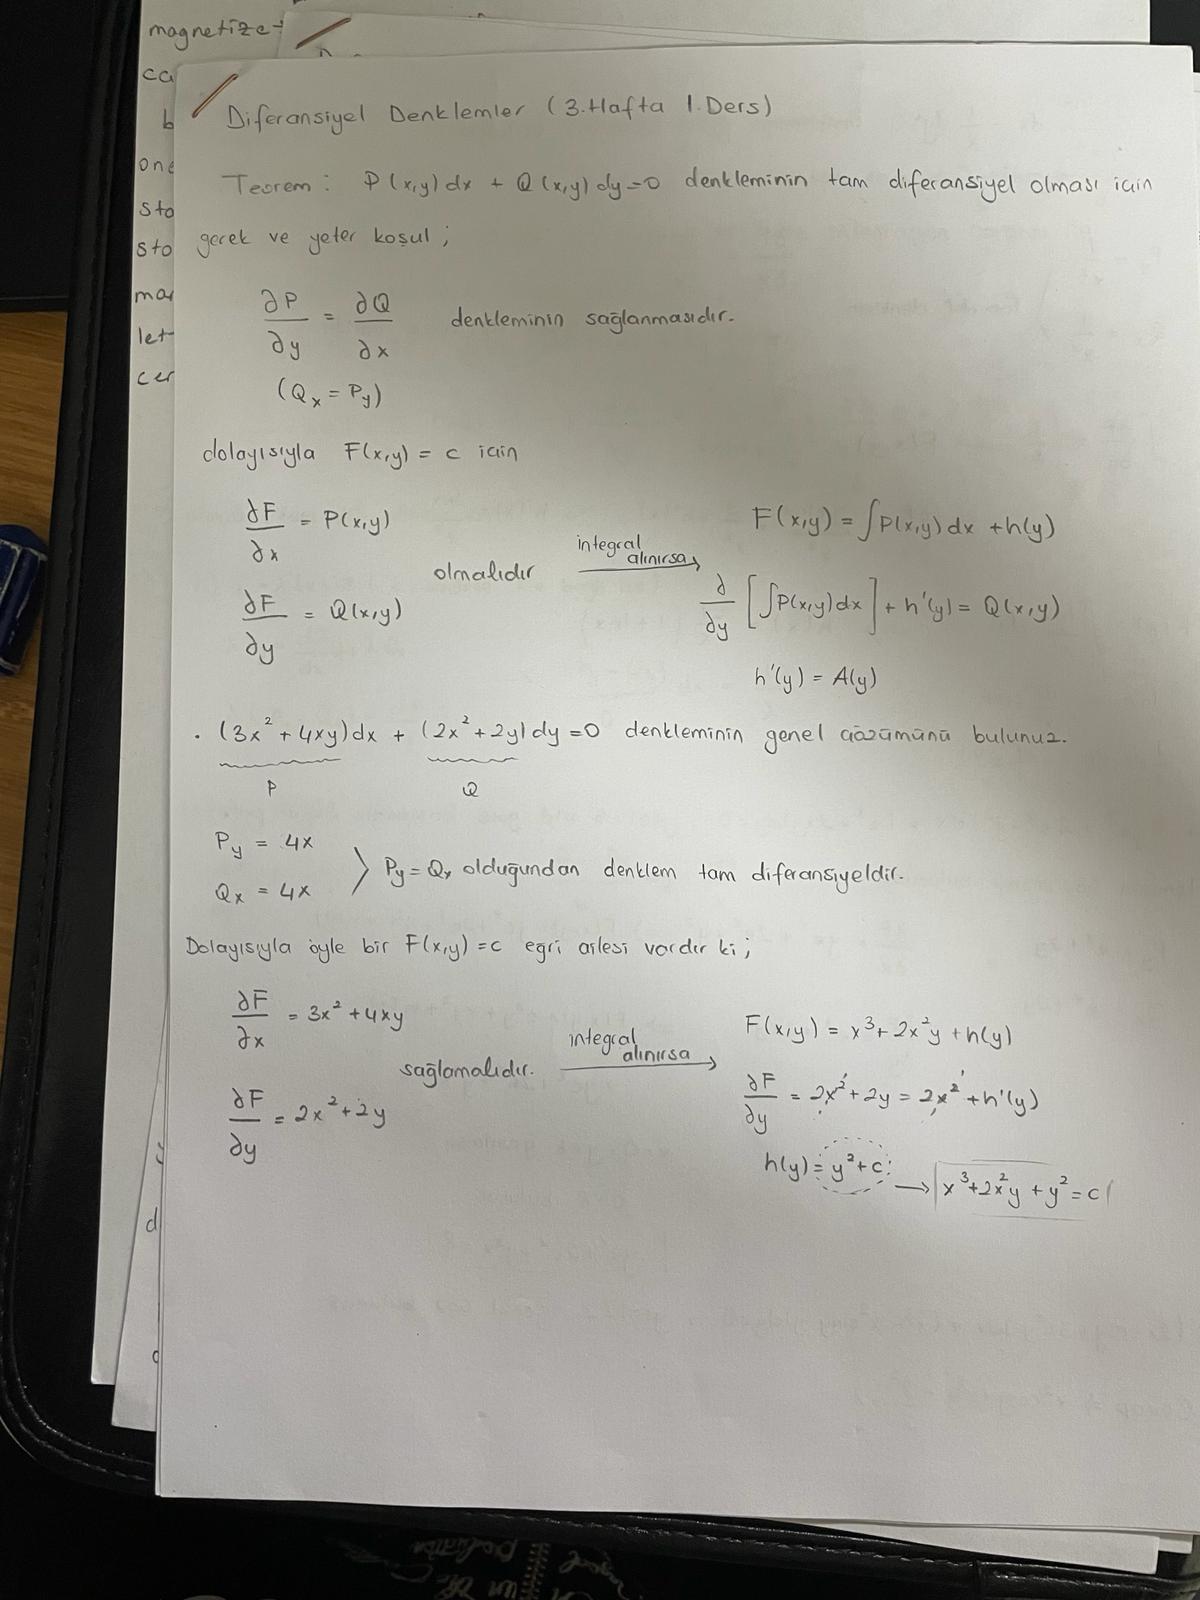 magnetize
ca
b
one
sto
sto
mar
let
cer
Diferansiyel Denklemler (3.Hafta 1.Ders)
Teorem: P(x,y)dx + Q(x,y)dy=0 denkleminin tam diferansiyel olması için
gerek ve yeter koşul;
∂P/∂y = ∂Q/∂x denkleminin sağlanmasıdır.
(Qx = Py)
dolayısıyla F(x,y) = c için
∂F/∂x = P(x,y)
∂F/∂y = Q(x,y)
olmalıdır
integral alınırsa →
F(x,y) = ∫P(x,y)dx + h(y)
∂/∂y [∫P(x,y)dx] + h'(y) = Q(x,y)
h'(y) = A(y)
. (3x² + 4xy)dx + (2x² + 2y)dy = 0 denkleminin genel çözümünü bulunuz.
P Q
Py = 4x
Qx = 4x
> Py = Qx olduğundan denklem tam diferansiyeldir.
Dolayısıyla öyle bir F(x,y) = c eğri ailesi vardır ki;
∂F/∂x = 3x² + 4xy
∂F/∂y = 2x² + 2y
sağlamalıdır.
integral alınırsa →
F(x,y) = x³ + 2x²y + h(y)
∂F/∂y = 2x² + 2y = 2x² + h'(y)
h(y) = y² + c → x³ + 2x²y + y² = c
d